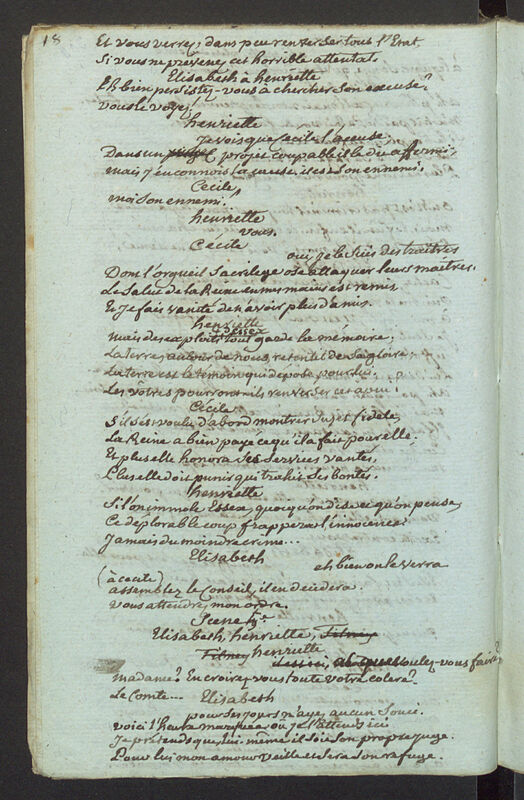 18
Et vous verrez, dans peu renverser tout l'Etat,
Si vous ne prevenez cet horrible attentat.
Elisabeth à henriette
Eh bien persistez-vous à chercher son excuse?
vous le voyez
henriette
Je vois que Cecile l'accuse,
Dans un projet coupable il le dit affermi,
mais j'en connois la cause, il est son ennemi.
Cecile,
moi son ennemi..
henriette
vous.
Cécile
oui je le suis des traitres
Dont l'orgueil Sacrilege ose attaquer leurs maîtres.
Le Salut de la Reine en mes mains est remis.
Et je fais vanité de n'avoir plus d'amis.
henriette
mais des exploits d'Essex tout garde la mémoire,
La terre, autour de nous, retentit de sa gloire;
La terre est le temoin qui depose pour lui.
Les vôtres pourront-ils renverser cet appui?
Cécile
S'il s'est voulu d'abord montrer sujet fidele,
La Reine a bien payé ce qu'il a fait pour elle.
Et plus elle honora ses services vantés,
Plus elle doit punir qui trahit ses bontés.
henriette
Si l'on immole Essex, quoi qu'on dise ce qu'on pense,
Ce deplorable coup frappera l'innocence
Jamais du moindre crime...
Elisabeth
eh bien on le verra
(à cecile)
assemblez le Conseil, il en decidera.
vous attendrez mon ordre.
Scene 4e
Elisabeth, henriette, Tilney
Tilney henriette
voulez-vous faire?
madame? En croirez vous toute votre colere?
Le Comte...
Elisabeth
pour ses jours n'ayez aucun souci.
voici l'heure marquée où je l'attends ici
Je prétends que lui-même il soit son propre juge.
Pour lui mon amour veille et sera son refuge.